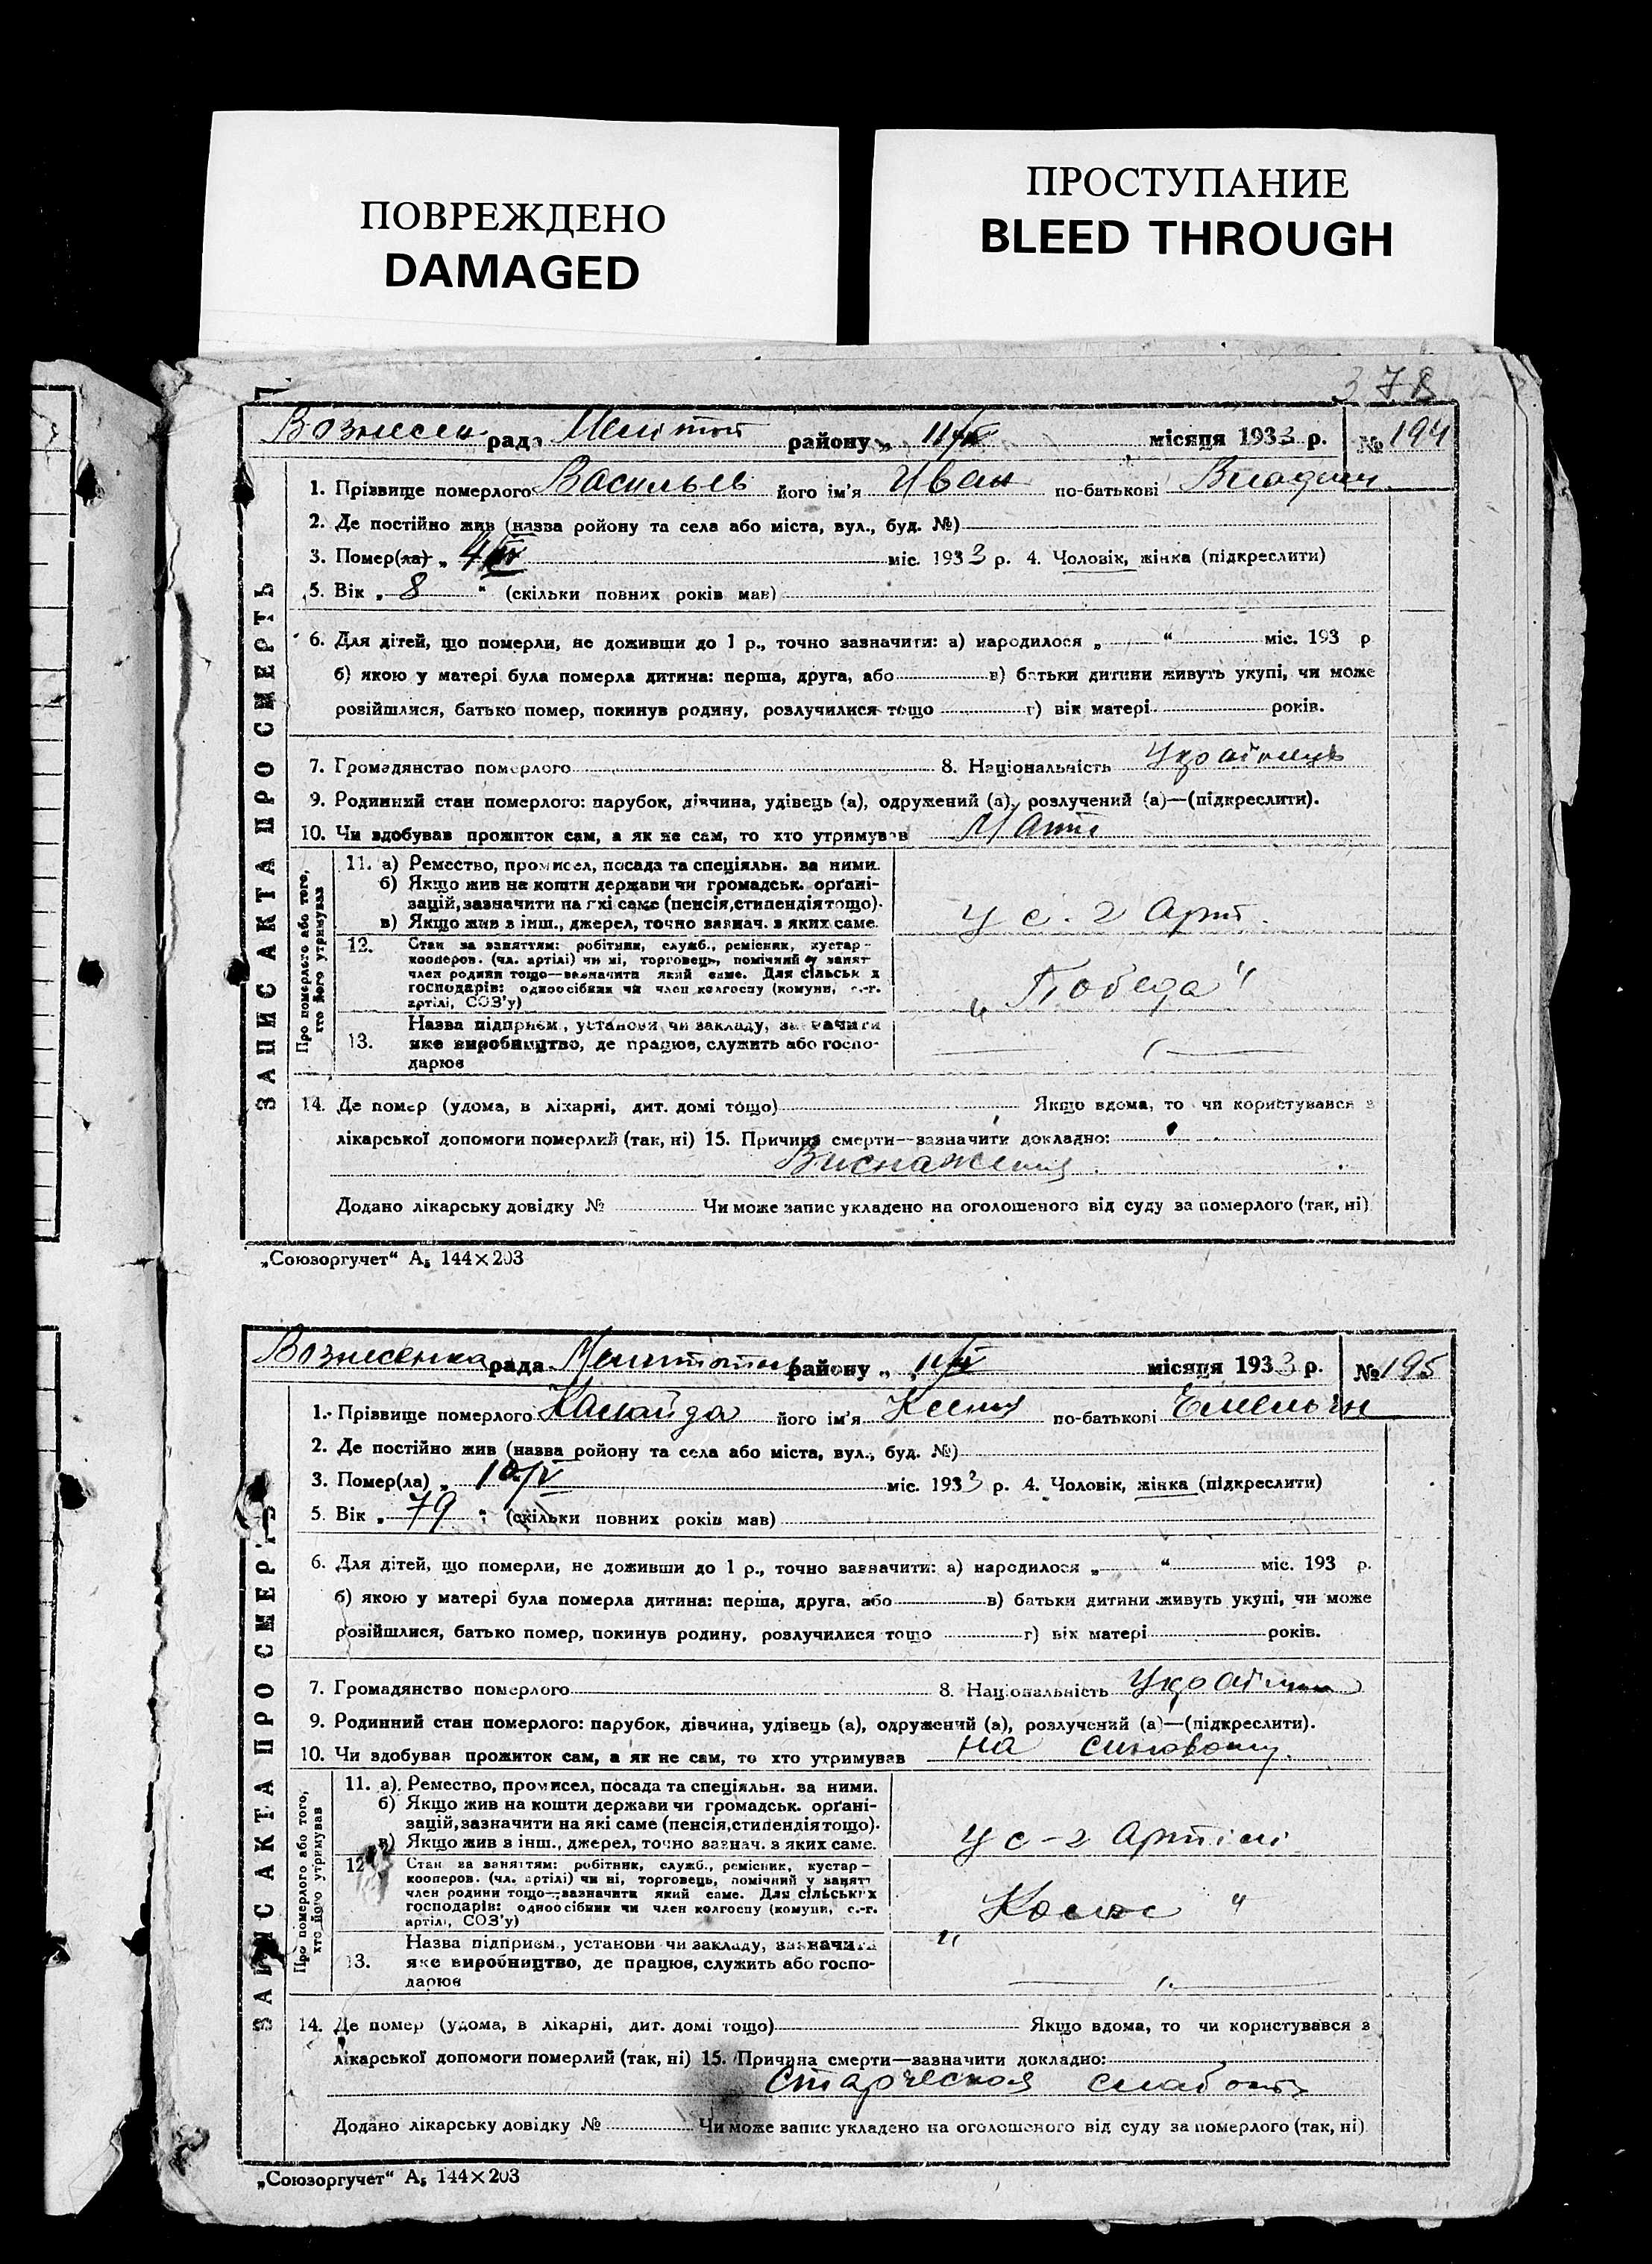 ПОВРЕЖДЕНО
DAMAGED
ПРОСТУПАНИЕ
BLEED THROUGH
378
Вознесен рада Мелітоп району „ 11/ місяця 1933 р. № 194
ЗАПИС АКТА ПРО СМЕРТЬ
1. Прізвище померлого Васильев його ім'я Иван по-батькові Владим
2. Де постійно жив (назва ройону та села або міста, вул., буд. №)
3. Помер(ла) „ 4/ міс. 1933 р. 4. Чоловік, жінка (підкреслити)
5. Вік „ 8 “ (скільки повних років мав)
6. Для дітей, що померли, не доживши до 1 р., точно зазначити: а) народилося „ “ міс. 193 р
б) якою у матері була померла дитина: перша, друга, або в) батьки дитини живуть укупі, чи може
розійшлися, батько помер, покинув родину, розлучилися тощо г) вік матері років.
7. Громадянство померлого 8. Національність Українець
9. Родинний стан померлого: парубок, дівчина, удівець (а), одружений (а), розлучений (а)—(підкреслити).
10. Чи здобував прожиток сам, а як не сам, то хто утримував Мати
Про померлого або того, хто його утримував
11. а) Ремество, промисел, посада та спеціяльн. за ними.
б) Якщо жив на кошти держави чи громадськ. орґані-
зацій, зазначити на які саме (пенсія, стипендія тощо).
в) Якщо жив з інш., джерел, точно зазнач. з яких саме.
у с-г Арт.
12. Стан за заняттям: робітник, служб., ремісник, кустар-
кооперов. (чл. артілі) чи ні, торговець, помічний у занят
член родини тощо—зазначити який саме. Для сільськ х
господарів: одноосібник чи член колгоспу (комуни, с.-г.
артілі, СОЗ'у)
„Победа“
13. Назва підприєм., установи чи закладу, зазначити
яке виробництво, де працює, служить або госпо-
дарює
14. Де помер (удома, в лікарні, дит. домі тощо) Якщо вдома, то чи користувався з
лікарської допомоги померлий (так, ні) 15. Причина смерти—зазначити докладно:
Виснаження
Додано лікарську довідку № Чи може запис укладено на оголошеного від суду за померлого (так, ні)
„Союзоргучет“ А₅ 144×203
Вознесенка рада Меліт району „ 11/ місяця 1933 р. № 195
ЗАПИС АКТА ПРО СМЕРТЬ
1. Прізвище померлого Калайда його ім'я Ксения по-батькові Емельян
2. Де постійно жив (назва ройону та села або міста, вул., буд. №)
3. Помер(ла) „ 10/V міс. 1933 р. 4. Чоловік, жінка (підкреслити)
5. Вік „ 79 “ (скільки повних років мав)
6. Для дітей, що померли, не доживши до 1 р., точно зазначити: а) народилося „ “ міс. 193 р.
б) якою у матері була померла дитина: перша, друга, або в) батьки дитини живуть укупі, чи може
розійшлися, батько помер, покинув родину, розлучилися тощо г) вік матері років.
7. Громадянство померлого 8. Національність
9. Родинний стан померлого: парубок, дівчина, удівець (а), одружений (а), розлучений (а)—(підкреслити).
10. Чи здобував прожиток сам, а як не сам, то хто утримував на
Про померлого або того, хто його утримував
11. а). Ремество, промисел, посада та спеціяльн. за ними.
б) Якщо жив на кошти держави чи громадськ. орґані-
зацій, зазначити на які саме (пенсія, стипендія тощо).
в) Якщо жив з інш., джерел, точно зазнач. з яких саме.
у с-г Артілі
12. Стан за заняттям: робітник, служб., ремісник, кустар-
кооперов. (чл. артілі) чи ні, торговець, помічний у занят
член родини тощо—зазначити який саме. Для сільських
господарів: одноосібник чи член колгоспу (комуни, с.-г.
артілі, СОЗ'у)
„Колос“
13. Назва підприєм., установи чи закладу, зазначити
яке виробництво, де працює, служить або госпо-
дарює
14. Де помер (удома, в лікарні, дит. домі тощо) Якщо вдома, то чи користувався з
лікарської допомоги померлий (так, ні) 15. Причина смерти—зазначити докладно:
Старческая слабость
Додано лікарську довідку № Чи може запис укладено на оголошеного від суду за померлого (так, ні)
„Союзоргучет“ А₅ 144×203